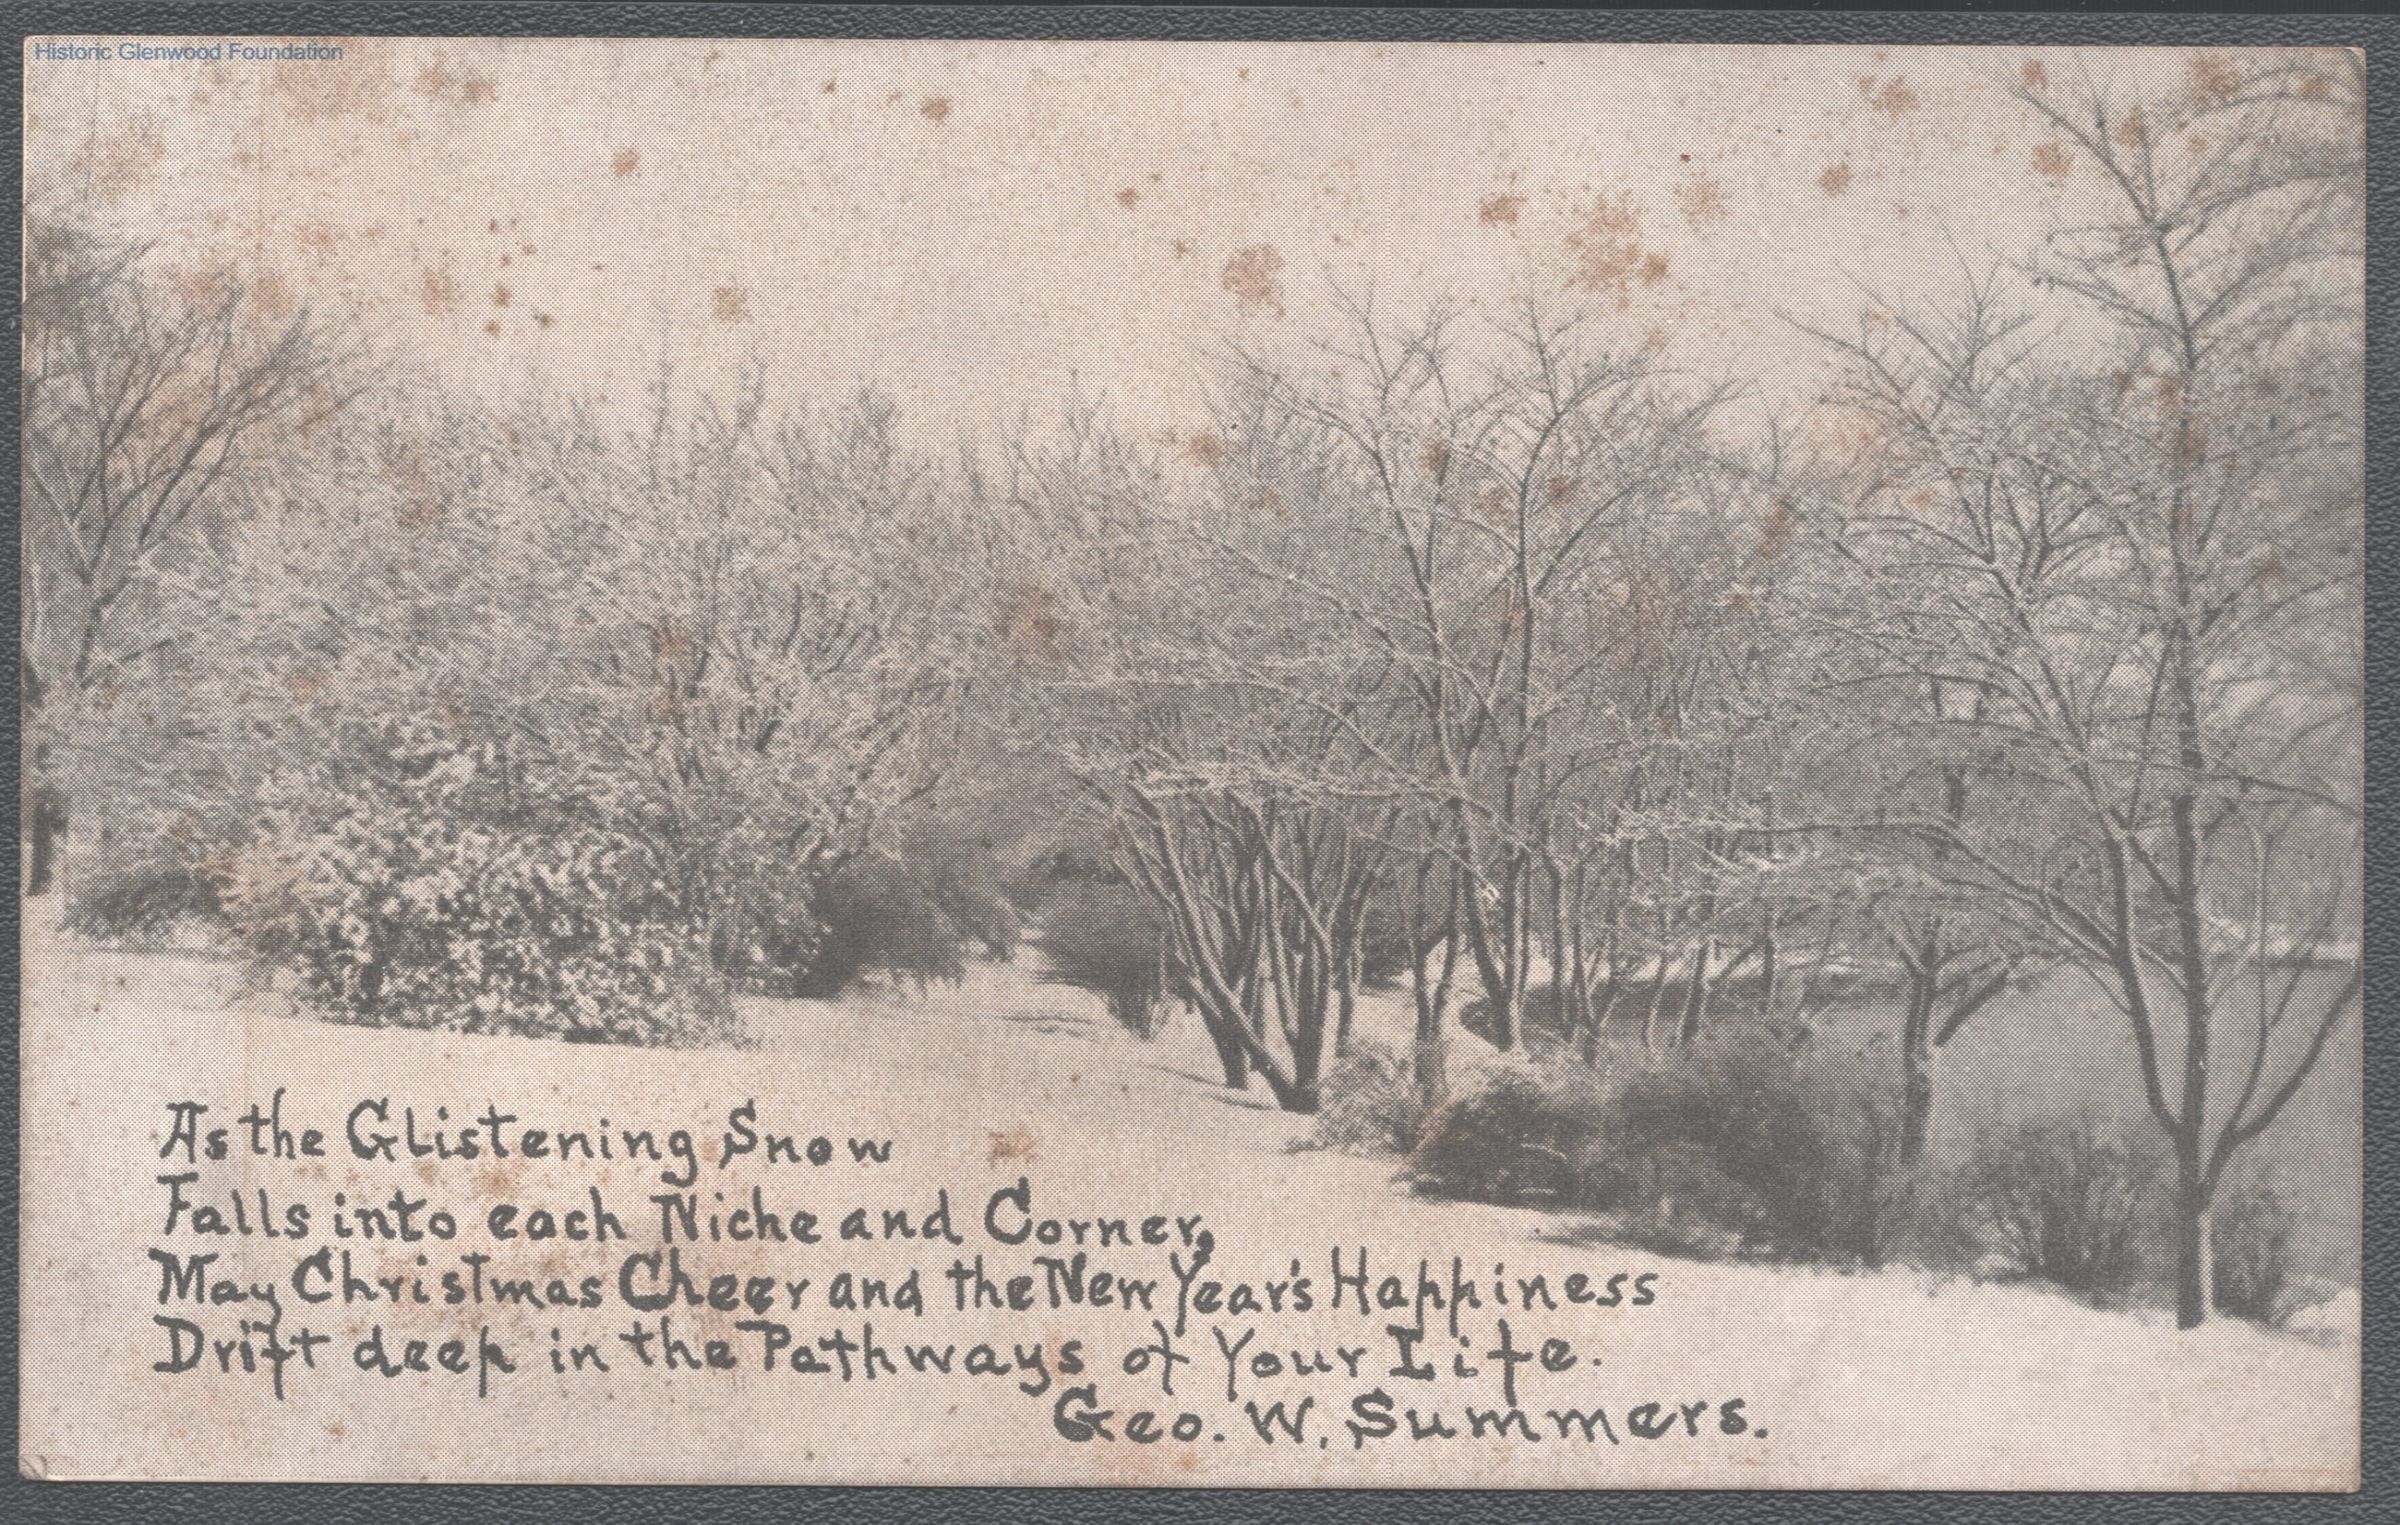 Historic Glenwood Foundation
As the Glistening Snow
Falls into each Niche and Corner,
May Christmas Cheer and the New Year's Happiness
Drift deep in the Pathways of Your Life.
Geo. W. Summers.